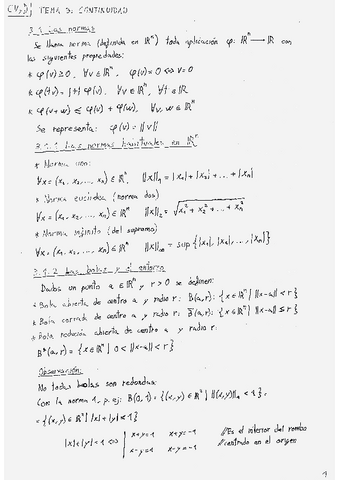 TEMA 3: CONTINUIDAD
3.1 Las normas
Se llama norma (definida en ℝⁿ) toda aplicación φ: ℝⁿ → ℝ con
las siguientes propiedades:
* φ(v) ≥ 0, ∀v ∈ ℝⁿ, φ(v) = 0 ⇔ v = 0
* φ(tv) = |t| φ(v), ∀v ∈ ℝⁿ, ∀t ∈ ℝ
* φ(v+w) ≤ φ(v) + φ(w), ∀v, w ∈ ℝⁿ
Se representa: φ(v) = ||v||
3.1.1 Las normas habituales en ℝⁿ
* Norma uno:
∀x = (x₁, x₂, ..., xₙ) ∈ ℝⁿ, ||x||₁ = |x₁| + |x₂| + ... + |xₙ|
* Norma euclídea (norma dos)
∀x = (x₁, x₂, ..., xₙ) ∈ ℝⁿ ||x||₂ = √(x₁² + x₂² + ... + xₙ²)
* Norma infinito (del supremo)
∀x = (x₁, x₂, ..., xₙ) ∈ ℝⁿ, ||x||∞ = sup {|x₁|, |x₂|, ..., |xₙ|}
3.1.2 Las bolas y el entorno
Dados un punto a ∈ ℝⁿ, y r > 0 se definen:
* Bola abierta de centro a y radio r: B(a, r): {x ∈ ℝⁿ | ||x-a|| < r}
* Bola cerrada de centro a y radio r: B̄(a, r): {x ∈ ℝⁿ | ||x-a|| ≤ r}
* Bola reducida abierta de centro a y radio r:
B*(a, r) = {x ∈ ℝⁿ | 0 < ||x-a|| < r}
Observación:
No todas bolas son redondas:
Con la norma 1, p. ej: B(0, 1) = {(x, y) ∈ ℝⁿ | ||(x, y)||₁ < 1} =
= {(x, y) ∈ ℝⁿ | |x| + |y| < 1}
|x| + |y| < 1 ⇔ { x+y=1 x+y=-1 //Es el interior del rombo
x-y=1 x-y=-1 //centrado en el origen
1